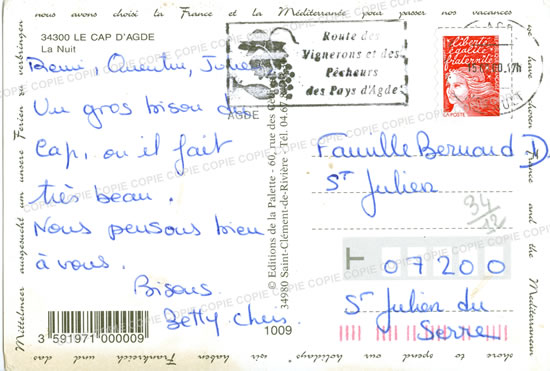 nous avons choisi la France et la Méditerranée pour passer nos vacances
34300 LE CAP D'AGDE
La Nuit
Remi, Quentin, Julie
Un gros bisou du
Cap, ou il fait
très beau.
Nous pensons bien
à vous.
Bisous
Betty Chris
3 591971 000009
1009
© Editions de la Palette - 60, rue des
34980 Saint-Clément-de-Rivière - Tél. 04.67
AGDE
Route des
Vignerons et des
Pêcheurs
des Pays d'Agde
liberté
égalité
fraternité
LA POSTE
Famille Bernaud D
ST Julien
34/12
T 07200
St Julien du
Serre
we have chosen France and the Mediterranean
shore to spend our holidays
wir haben Frankreich und das
Mittelmeer ausgesucht um unsere Ferien zu verbringen
COPIE COPIE COPIE COPIE